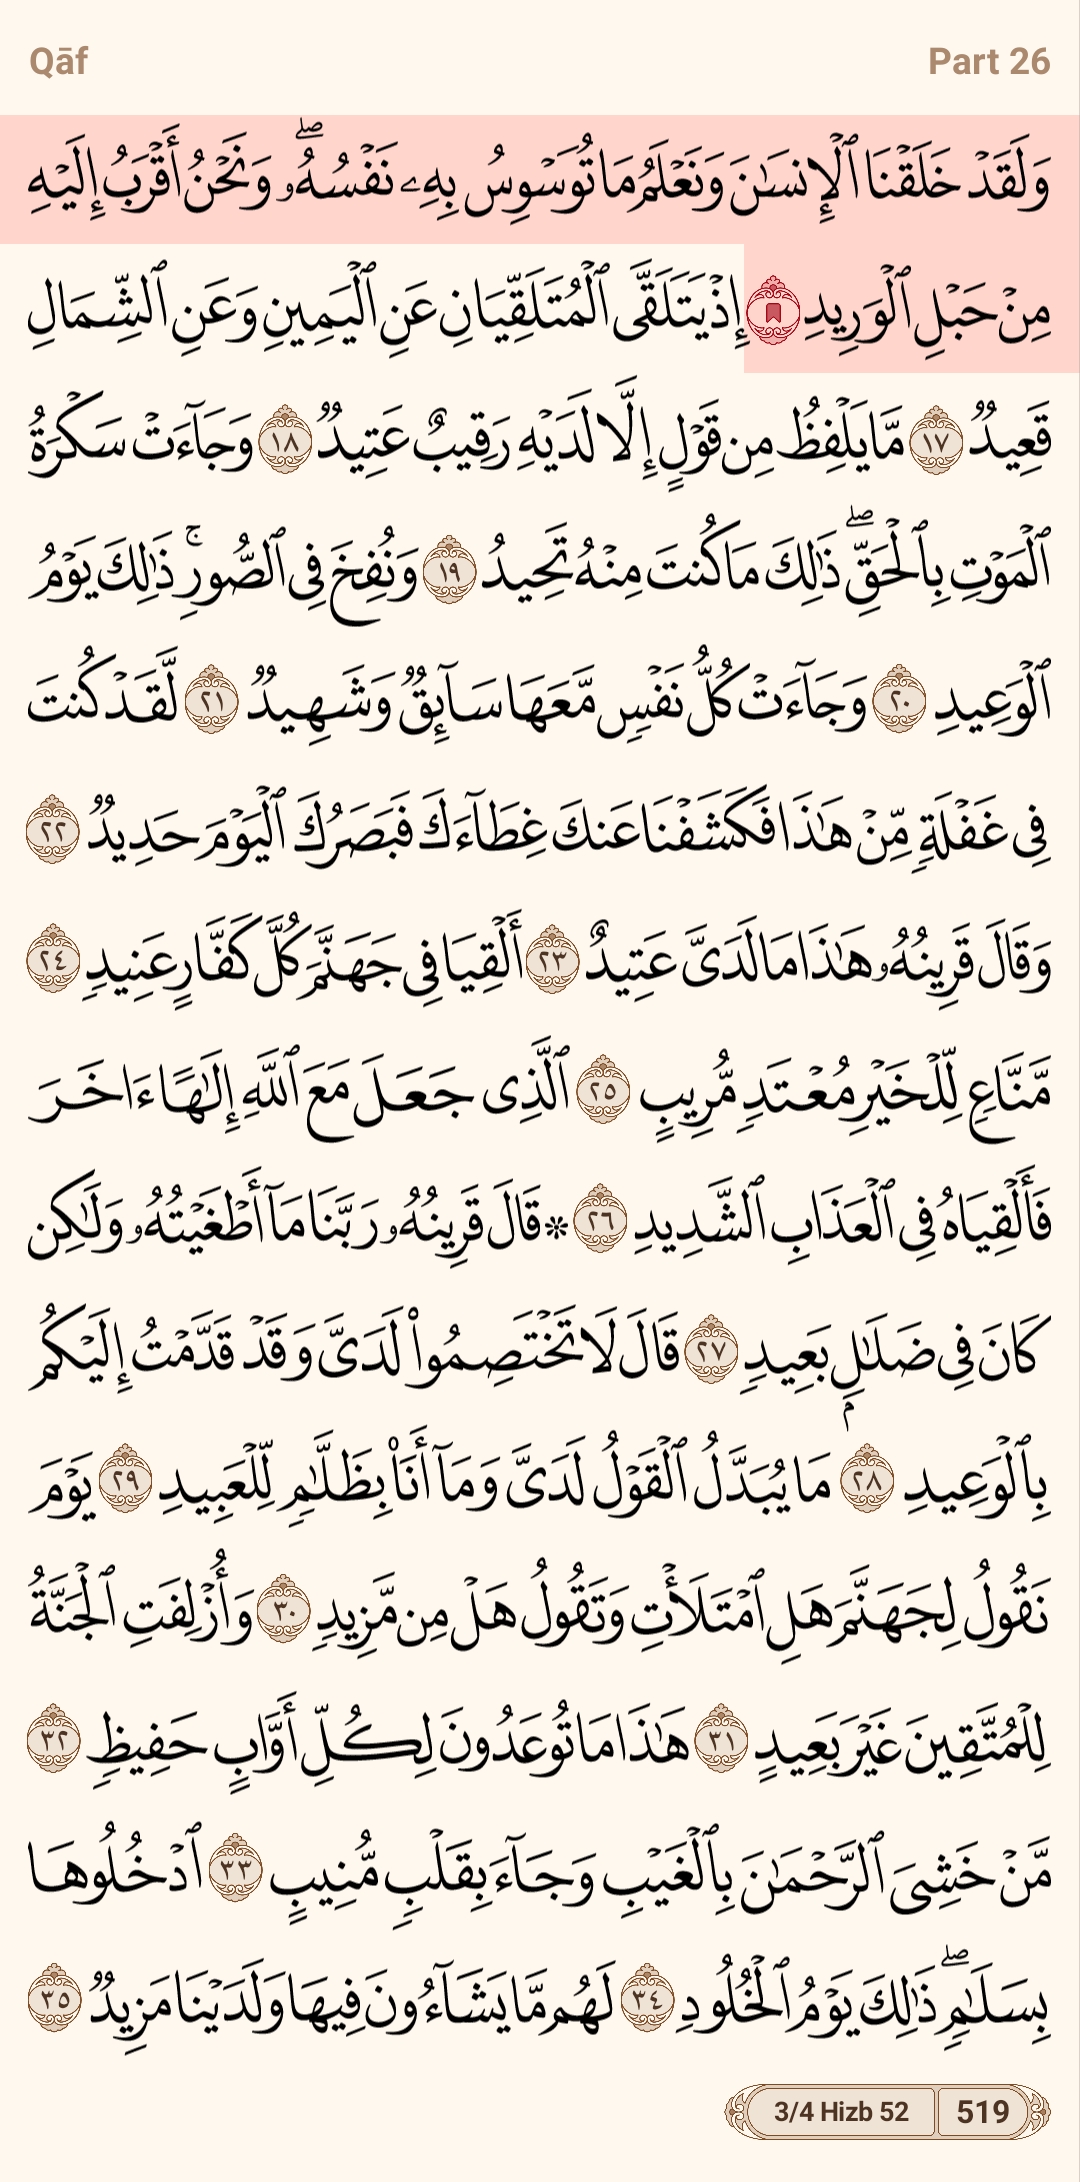 Qāf
Part 26
وَلَقَدْ خَلَقْنَا ٱلْإِنسَٰنَ وَنَعْلَمُ مَا تُوَسْوِسُ بِهِۦ نَفْسُهُۥ ۖ وَنَحْنُ أَقْرَبُ إِلَيْهِ
مِنْ حَبْلِ ٱلْوَرِيدِ إِذْ يَتَلَقَّى ٱلْمُتَلَقِّيَانِ عَنِ ٱلْيَمِينِ وَعَنِ ٱلشِّمَالِ
قَعِيدٌ ١٧ مَّا يَلْفِظُ مِن قَوْلٍ إِلَّا لَدَيْهِ رَقِيبٌ عَتِيدٌ ١٨ وَجَآءَتْ سَكْرَةُ
ٱلْمَوْتِ بِٱلْحَقِّ ۖ ذَٰلِكَ مَا كُنتَ مِنْهُ تَحِيدُ ١٩ وَنُفِخَ فِى ٱلصُّورِ ۚ ذَٰلِكَ يَوْمُ
ٱلْوَعِيدِ ٢٠ وَجَآءَتْ كُلُّ نَفْسٍ مَّعَهَا سَآئِقٌ وَشَهِيدٌ ٢١ لَّقَدْ كُنتَ
فِى غَفْلَةٍ مِّنْ هَٰذَا فَكَشَفْنَا عَنكَ غِطَآءَكَ فَبَصَرُكَ ٱلْيَوْمَ حَدِيدٌ ٢٢
وَقَالَ قَرِينُهُۥ هَٰذَا مَا لَدَىَّ عَتِيدٌ ٢٣ أَلْقِيَا فِى جَهَنَّمَ كُلَّ كَفَّارٍ عَنِيدٍ ٢٤
مَّنَّاعٍ لِّلْخَيْرِ مُعْتَدٍ مُّرِيبٍ ٢٥ ٱلَّذِى جَعَلَ مَعَ ٱللَّهِ إِلَٰهًا ءَاخَرَ
فَأَلْقِيَاهُ فِى ٱلْعَذَابِ ٱلشَّدِيدِ ٢٦ ۞ قَالَ قَرِينُهُۥ رَبَّنَا مَآ أَطْغَيْتُهُۥ وَلَٰكِن
كَانَ فِى ضَلَٰلٍۭ بَعِيدٍ ٢٧ قَالَ لَا تَخْتَصِمُوا۟ لَدَىَّ وَقَدْ قَدَّمْتُ إِلَيْكُم
بِٱلْوَعِيدِ ٢٨ مَا يُبَدَّلُ ٱلْقَوْلُ لَدَىَّ وَمَآ أَنَا۠ بِظَلَّٰمٍ لِّلْعَبِيدِ ٢٩ يَوْمَ
نَقُولُ لِجَهَنَّمَ هَلِ ٱمْتَلَأْتِ وَتَقُولُ هَلْ مِن مَّزِيدٍ ٣٠ وَأُزْلِفَتِ ٱلْجَنَّةُ
لِلْمُتَّقِينَ غَيْرَ بَعِيدٍ ٣١ هَٰذَا مَا تُوعَدُونَ لِكُلِّ أَوَّابٍ حَفِيظٍ ٣٢
مَّنْ خَشِىَ ٱلرَّحْمَٰنَ بِٱلْغَيْبِ وَجَآءَ بِقَلْبٍ مُّنِيبٍ ٣٣ ٱدْخُلُوهَا
بِسَلَٰمٍ ۖ ذَٰلِكَ يَوْمُ ٱلْخُلُودِ ٣٤ لَهُم مَّا يَشَآءُونَ فِيهَا وَلَدَيْنَا مَزِيدٌ ٣٥
3/4 Hizb 52
519